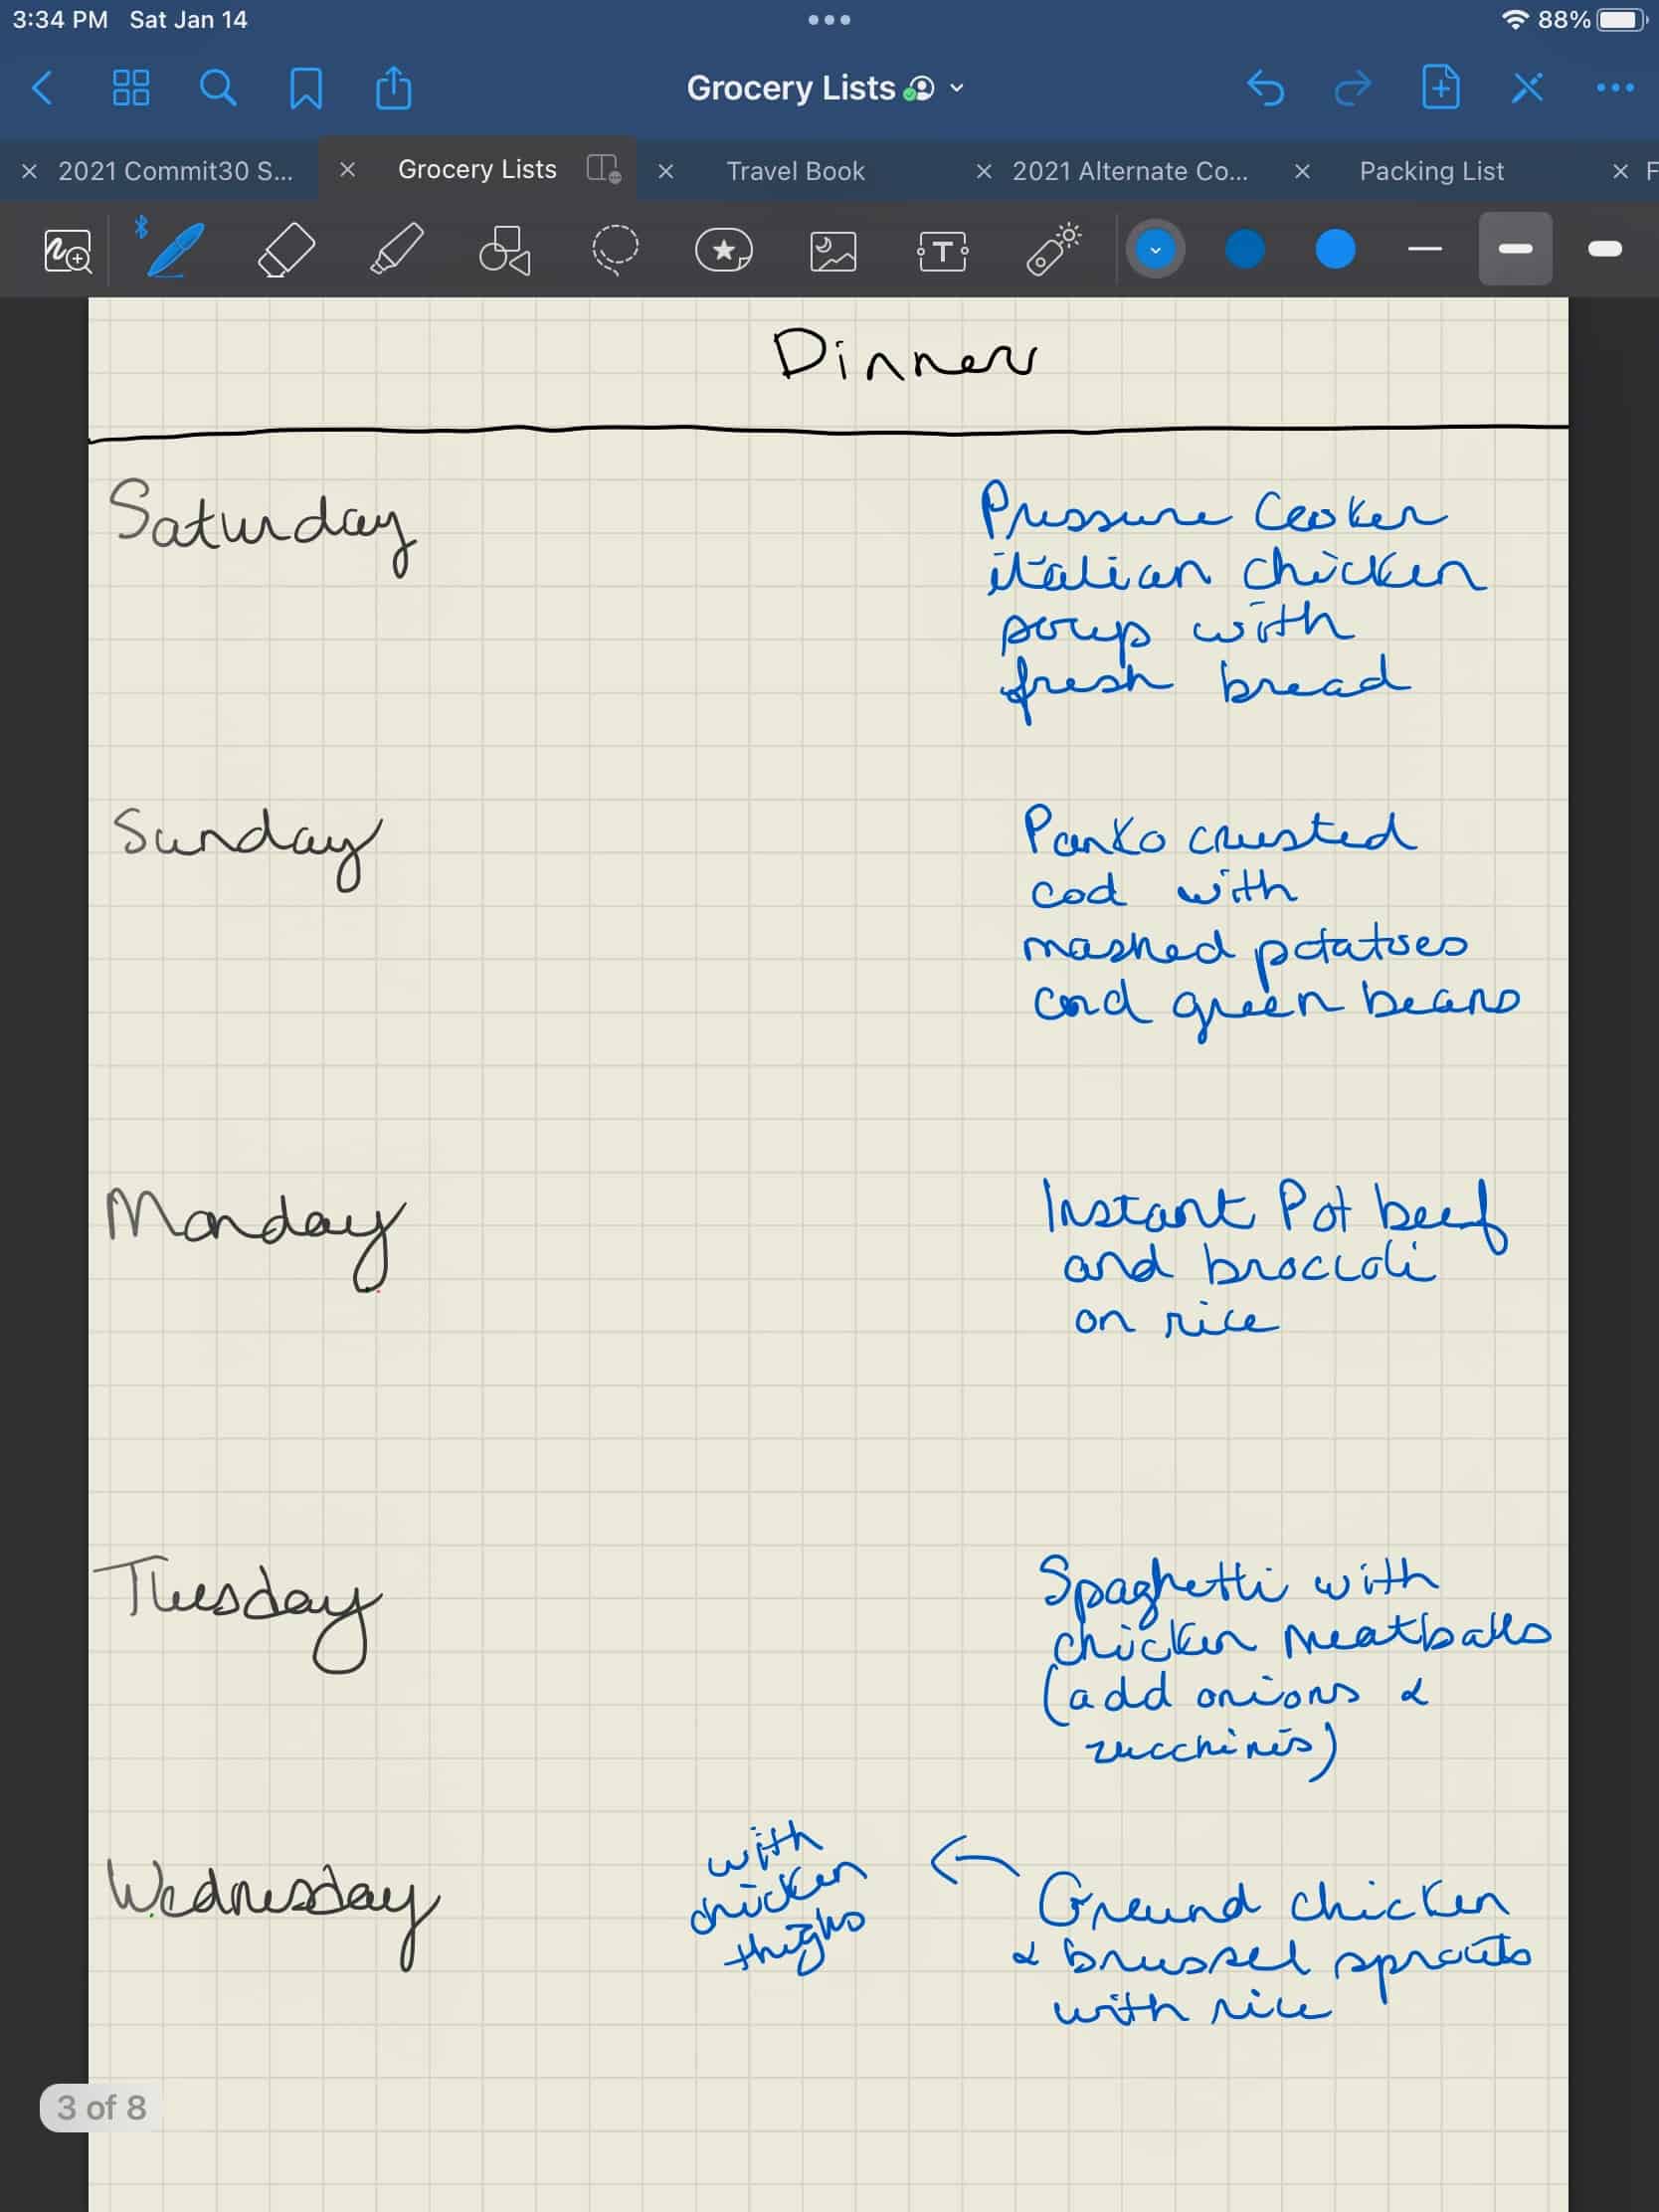 3:34 PM Sat Jan 14
88%
Grocery Lists
2021 Commit30 S...
Grocery Lists
Travel Book
2021 Alternate Co...
Packing List
F
T
Dinner
Saturday
Pressure Cooker
italian chicken
soup with
fresh bread
Sunday
Panko crusted
cod with
mashed potatoes
and green beans
Monday
Instant Pot beef
and broccoli
on rice
Tuesday
Spaghetti with
chicken meatballs
(add onions &
zucchinis)
Wednesday
with
chicken
thighs
Ground chicken
& brussel sprouts
with rice
3 of 8